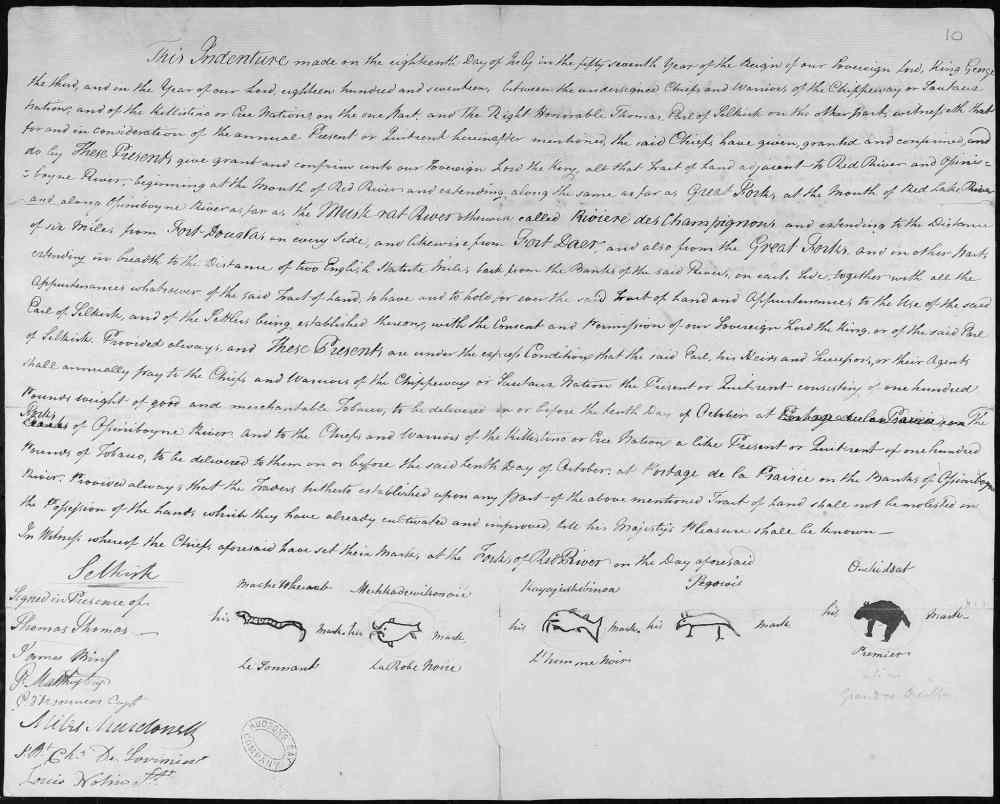 10
This Indenture made on the eighteenth Day of July in the fifty seventh Year of the Reign of our Sovereign Lord, King George
the third, and in the Year of our Lord, eighteen hundred and seventeen, between the undersigned Chiefs and Warriors of the Chippeway or Sautaux
Nation, and of the Killistino or Cree Nation, on the one Part, and The Right Honorable Thomas, Earl of Selkirk on the other part, witnesseth that
for and in consideration of the annual Present or Quitrent hereinafter mentioned, the said Chiefs have given, granted and confirmed, and
do by These Presents give grant and confirm unto our Sovereign Lord the King, all that Tract of Land adjacent to Red River and Ossini=
=boyne River, beginning at the Mouth of Red River and extending along the same as far as Great Forks, at the Mouth of Red Lake River
and along Ossiniboyne River as far as the Musk rat River otherwise called Rivière des Champignons, and extending to the Distance
of six Miles from Fort Douglas on every Side, and likewise from Fort Daer, and also from the Great Forks, and in other parts
extending in breadth to the Distance of two English Statute Miles back from the Banks of the said Rivers, on each Side, together with all the
Appurtenances whatsoever of the said Tract of Land, to have and to hold for ever the said Tract of Land and Appurtenances to the Use of the said
Earl of Selkirk, and of the Settlers being established thereon, with the Consent and Permission of our Sovereign Lord the King, or of the said Earl
of Selkirk. Provided always, and These Presents are under the express Condition that the said Earl, his Heirs and Successors, or their Agents
shall annually pay to the Chiefs and Warriors of the Chippeway or Sautaux Nation the Present or Quitrent consisting of one hundred
Pounds weight of good and merchantable Tobacco, to be delivered on or before the tenth Day of October at Portage de la Prairie on The
Forks
Banks of Ossiniboyne River. and to the Chiefs and Warriors of the Killistino or Cree Nation a like Present or Quitrent of one hundred
Pounds of Tobacco, to be delivered to them on or before the said tenth Day of October, at Portage de la Prairie on the Banks of Ossiniboyne
River. Provided always that the Traders hitherto established upon any Part of the above mentioned Tract of Land shall not be molested in
the Possession of the Lands which they have already cultivated and improved, till his Majesty's Pleasure shall be known—
In Witness whereof the Chiefs aforesaid have set their Marks, at the Forks of Red River on the Day aforesaid
Selkirk
Signed in Presence of
Thomas Thomas
James Bird
P. D'Orsonnens Capt
Miles Macdonell
J. Bt. Chs. De Lorimier
Louis Nolin
Mache Wheseab
his mark
Le Sonnant
Mechkadewikonaie
his mark
La Robe Noire
Kayajieskebinoa
his mark
L'homme Noir
Pegowis
his mark
Ouckidoat
his mark
Premier
alias
Grandes Oreilles
HUDSON'S BAY COMPANY